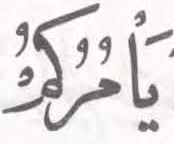 يَاْمُرُكُمْ